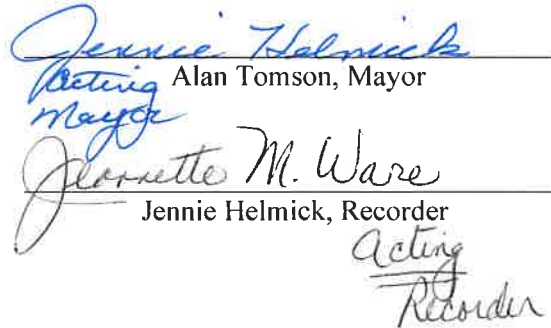 Jennie Helmick
Acting Alan Tomson, Mayor
Mayor
Jeannette M. Ware
Jennie Helmick, Recorder
Acting
Recorder